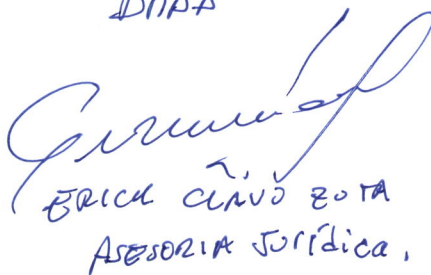 ERICK CLAVO ZOTA
ASESORIA JURídica.